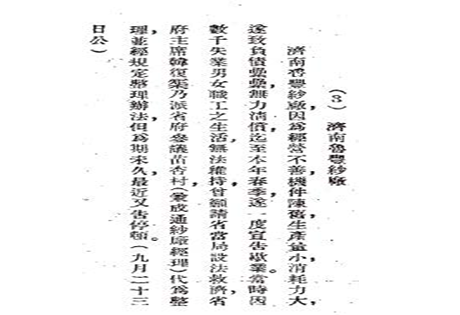 (3) 濟南魯豐紗廠
濟南魯豐紗廠,因爲經營不善,機件陳舊,生產量小,消耗力大,
遂致負債纍纍,無力淸償,迄至本年春季,遂一度宣告歇業。當時因
數千失業男女職工之生活,無法維持,曾籲請省當局設法救濟,省
府主席韓復榘乃派省府參議苗杏村,(兼成通紗廠經理)代爲整
理,並經規定整理辦法,但爲期未久,最近又告停頓。(九月二十三
日公)